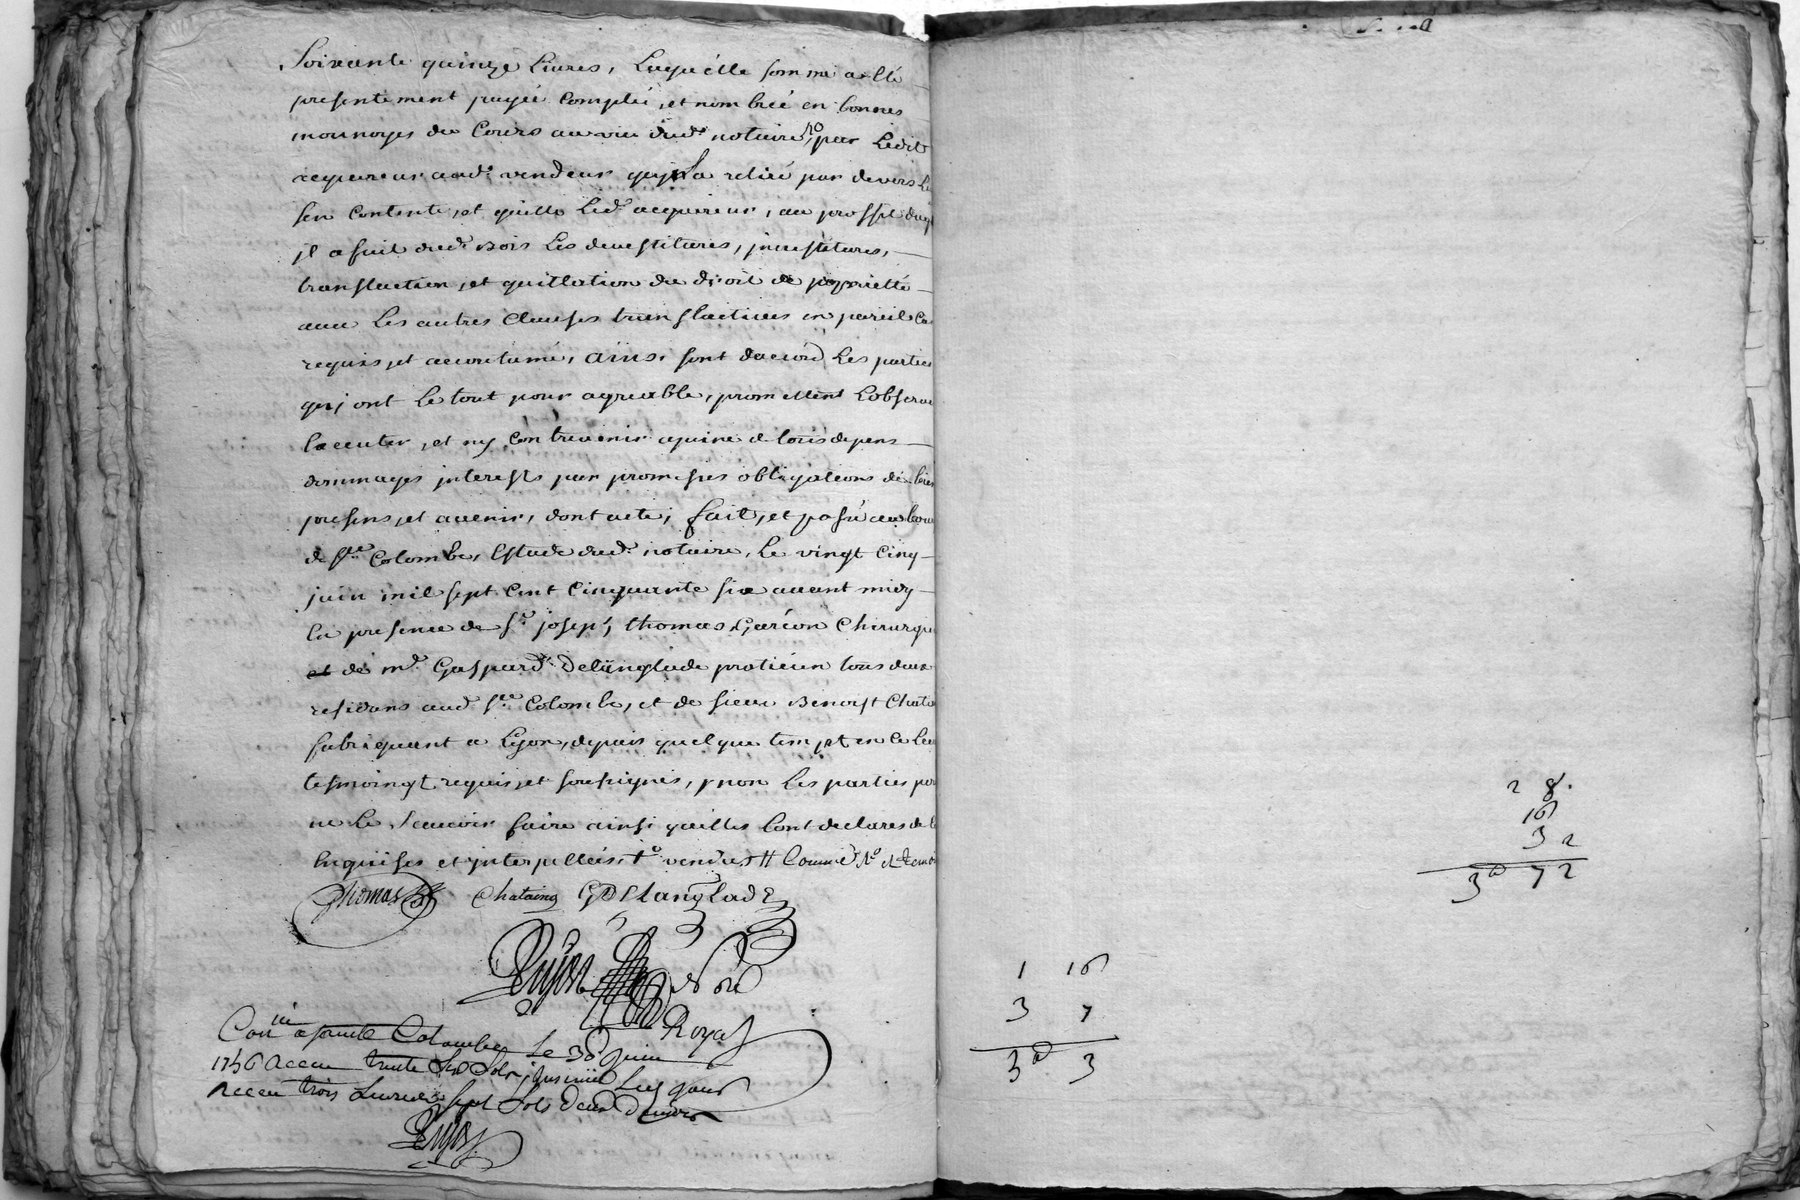 Soixante quinze Livres, Laquelle somme a esté
presentement payée Comptée, et nombrée en bonnes
monnoyes du Cours au veu dud. notaire, par Ledit
acquereur aud. vendeur quj La retiré par devers
s'en contente, et quitte Led. acquereur, au proffit duq
jl a fait dud. Bois Les devestitures, jnvestitures,
translaction, et quittation du droit de proprietté
avec Les autres Clauses translactives en pareil Ca
requis, et accoutumé, Ainsi sont daccord Les parties
quj ont Le tout pour agreable, promettent L'observer
L'executer, et ny contrevenir a peine de tous depens
dommages jnterests par promesses obligations de biens
presens, et avenir, dont acte; fait, et passé au bour
de Ste Colombe, Estude dud. notaire, Le vingt Cinq
juin mil sept Cent Cinquante six avant midy
En presence de Sr joseph thomas, Garcon Chirurgi
et de me. Gaspard Delanglade praticien tous deux
residans aud. Ste Colombe, et de sieur Benoist Chata
fabriquant a Lyon, depuis quelque tempt en ce Lieu
tesmoingt requis, et soussignés, & non Les parties pou
ne Le Scavoir faire ainsi quilles L'ont declarés de
Enquises et jnterpellées. vendus Comme
Thomas Chataing GDelanglade
Dujon Nore
Royal
Conlle a sainte Colombe Le 30 Juin
1756 Receu trente six Sols
Receu trois Livres sept Sols deux deniers
Dujon
2 8.
16
3 2
3 72
1 16
3 7
3 3